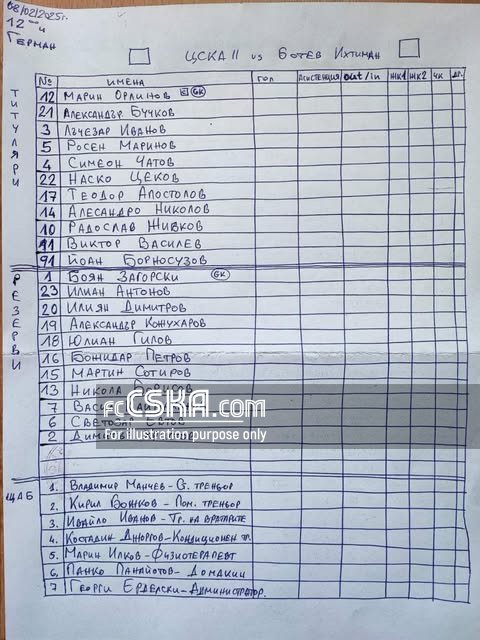 08/02/2025г.
12 00 ч
Герман
ЦСКА II vs Ботев Ихтиман
№ ИМЕНА ГОЛ АСИСТЕНЦИЯ out/in ЖК1 ЖК2 ЧК ДР.
ТИТУЛЯРИ
12 Марин Орлинов C GK
21 Александър Бучков
3 Лъчезар Иванов
5 Росен Маринов
4 Симеон Чатов
22 Наско Цеков
17 Теодор Апостолов
14 Алесандро Николов
10 Радослав Живков
11 Виктор Василев
91 Йоан Борносузов
РЕЗЕРВИ
1 Боян Загорски GK
23 Илиан Антонов
20 Илиян Димитров
19 Александър Кожухаров
18 Юлиан Гилов
16 Божидар Петров
15 Мартин Сотиров
13 Никола Борисов
7
6
2
fcCSKA.com
For illustration purpose only
ЩАБ
1. Владимир Манчев - Ст. треньор
2. Кирил Божков - Пом. треньор
3. Ивайло Иванов - Тр. на вратарите
4. Костадин Джоргов - Кондиционен тр.
5. Марин Илков - Физиотерапевт
6. Панко Панайотов - Домакин
7 Георги Ерделски - Администратор.